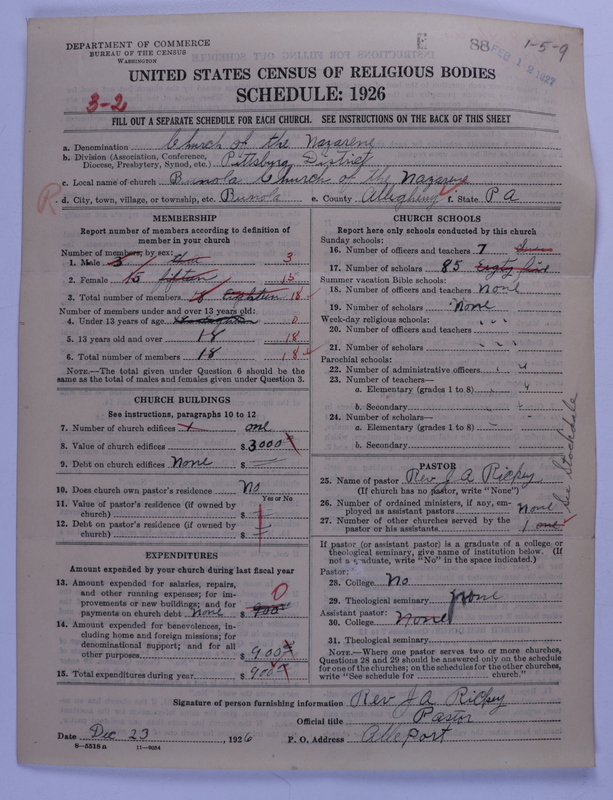 DEPARTMENT OF COMMERCE
BUREAU OF THE CENSUS
WASHINGTON
E
88
FEB 19 1927
1-5-9
UNITED STATES CENSUS OF RELIGIOUS BODIES
SCHEDULE: 1926
3-2
FILL OUT A SEPARATE SCHEDULE FOR EACH CHURCH. SEE INSTRUCTIONS ON THE BACK OF THIS SHEET
a. Denomination Church of the Nazarene
b. Division (Association, Conference,
Diocese, Presbytery, Synod, etc.) Pittsburg District
c. Local name of church Bunola Church of the Nazarene
R
d. City, town, village, or township, etc. Bunola e. County Allegheny f. State PA
MEMBERSHIP
Report number of members according to definition of
member in your church
Number of members, by sex:
1. Male 3 three 3
2. Female 15 fifteen 15
3. Total number of members 18 Eighteen 18
Number of members under and over 13 years old:
4. Under 13 years of age 0
5. 13 years old and over 18 18
6. Total number of members 18 18
NOTE.—The total given under Question 6 should be the
same as the total of males and females given under Question 3.
CHURCH BUILDINGS
See instructions, paragraphs 10 to 12
7. Number of church edifices 1 one
8. Value of church edifices $ 3000
9. Debt on church edifices None $
10. Does church own pastor's residence No
Yes or No
11. Value of pastor's residence (if owned by
church) $
12. Debt on pastor's residence (if owned by
church) $
EXPENDITURES
Amount expended by your church during last fiscal year
13. Amount expended for salaries, repairs,
and other running expenses; for im-
provements or new buildings; and for
payments on church debt none $ 900 0
14. Amount expended for benevolences, in-
cluding home and foreign missions; for
denominational support; and for all
other purposes $ 900
15. Total expenditures during year $ 900
CHURCH SCHOOLS
Report here only schools conducted by this church
Sunday schools:
16. Number of officers and teachers 7 Seven
17. Number of scholars 85 Eigty five
Summer vacation Bible schools:
18. Number of officers and teachers none
19. Number of scholars none
Week-day religious schools:
20. Number of officers and teachers
21. Number of scholars
Parochial schools:
22. Number of administrative officers
23. Number of teachers—
a. Elementary (grades 1 to 8)
b. Secondary
24. Number of scholars—
a. Elementary (grades 1 to 8)
b. Secondary
See Stockdale
PASTOR
25. Name of pastor Rev J A Rickey
(If church has no pastor, write "None")
26. Number of ordained ministers, if any, em-
ployed as assistant pastors none
27. Number of other churches served by the
pastor or his assistants 1 one
If pastor (or assistant pastor) is a graduate of a college or
theological seminary, give name of institution below. (If
not a graduate, write "No" in the space indicated.)
Pastor:
28. College No
29. Theological seminary none
Assistant pastor:
30. College None
31. Theological seminary
NOTE.—Where one pastor serves two or more churches,
Questions 28 and 29 should be answered only on the schedule
for one of the churches; on the schedules for the other churches,
write "See schedule for church."
Signature of person furnishing information Rev J A Rickey
Official title Pastor
Date Dec 23, 1926 P. O. Address Alleport
8—5518 a 11—9054